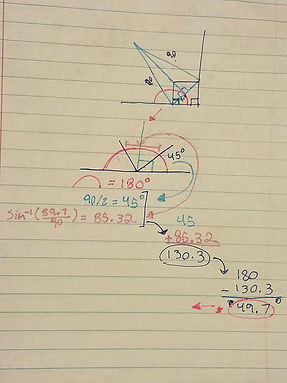 90
90
45°
= 180°
90/2 = 45°
sin⁻¹(89.7/90) = 85.32
45
+85.32
130.3
180
- 130.3
49.7